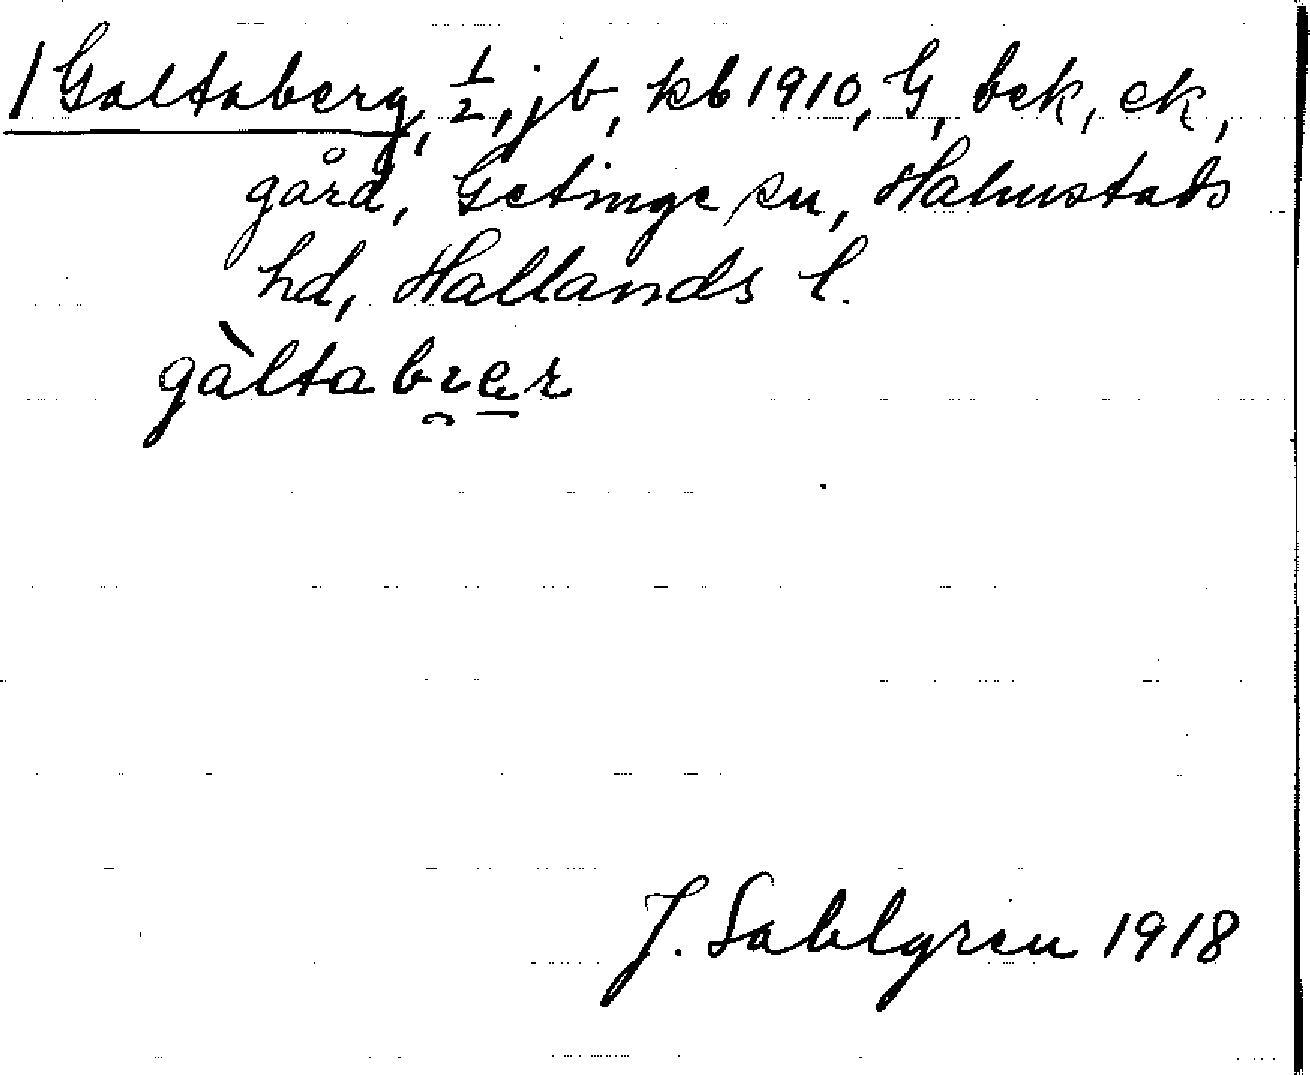 1 Galtaberg, 1/2, jb, kb 1910, G, bek, ek,
gård, Getinge sn, Halmstads
hd, Hallands l.
gàltabrer
J. Sahlgren 1918